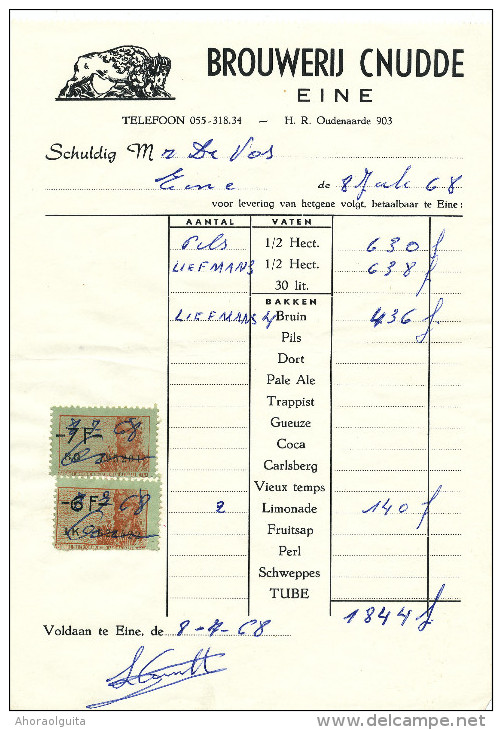 BROUWERIJ CNUDDE
EINE
TELEFOON 055-318.34 — H. R. Oudenaarde 903
Schuldig Mr De Vos
Eine de 8 Juli 68
voor levering van hetgene volgt, betaalbaar te Eine :
AANTAL VATEN
Pils 1/2 Hect. 630 f
LIEFMANS 1/2 Hect. 638 f
30 lit.
BAKKEN
LIEFMANS Bruin 436 f
Pils
Dort
Pale Ale
Trappist
Gueuze
-7F- 68
Coca
Carlsberg
Vieux temps
-6F- 68
2 Limonade 140 f
Fruitsap
Perl
Schweppes
TUBE
1844 f
Voldaan te Eine, de 8-7-68
Ahoraolguita
http://www.delcampe.net